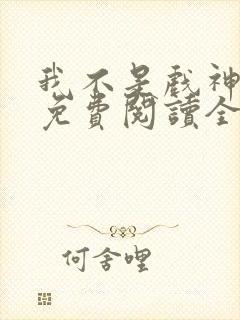 我不是戲神
免費閱讀全
何舍哩